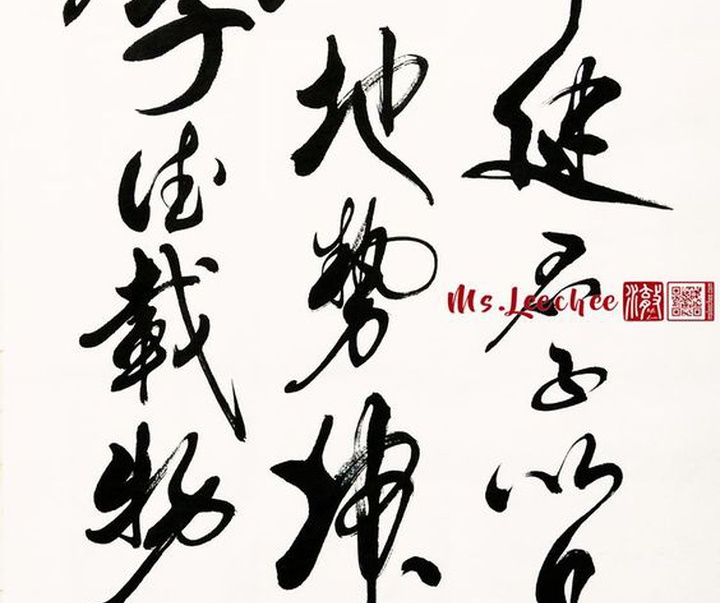 健君子以自
地勢坤
厚德載物
Ms.Leechee